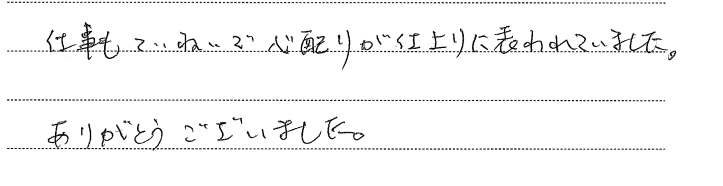 仕事もていねいで心配りが仕上りに表われていました。
ありがとうございました。